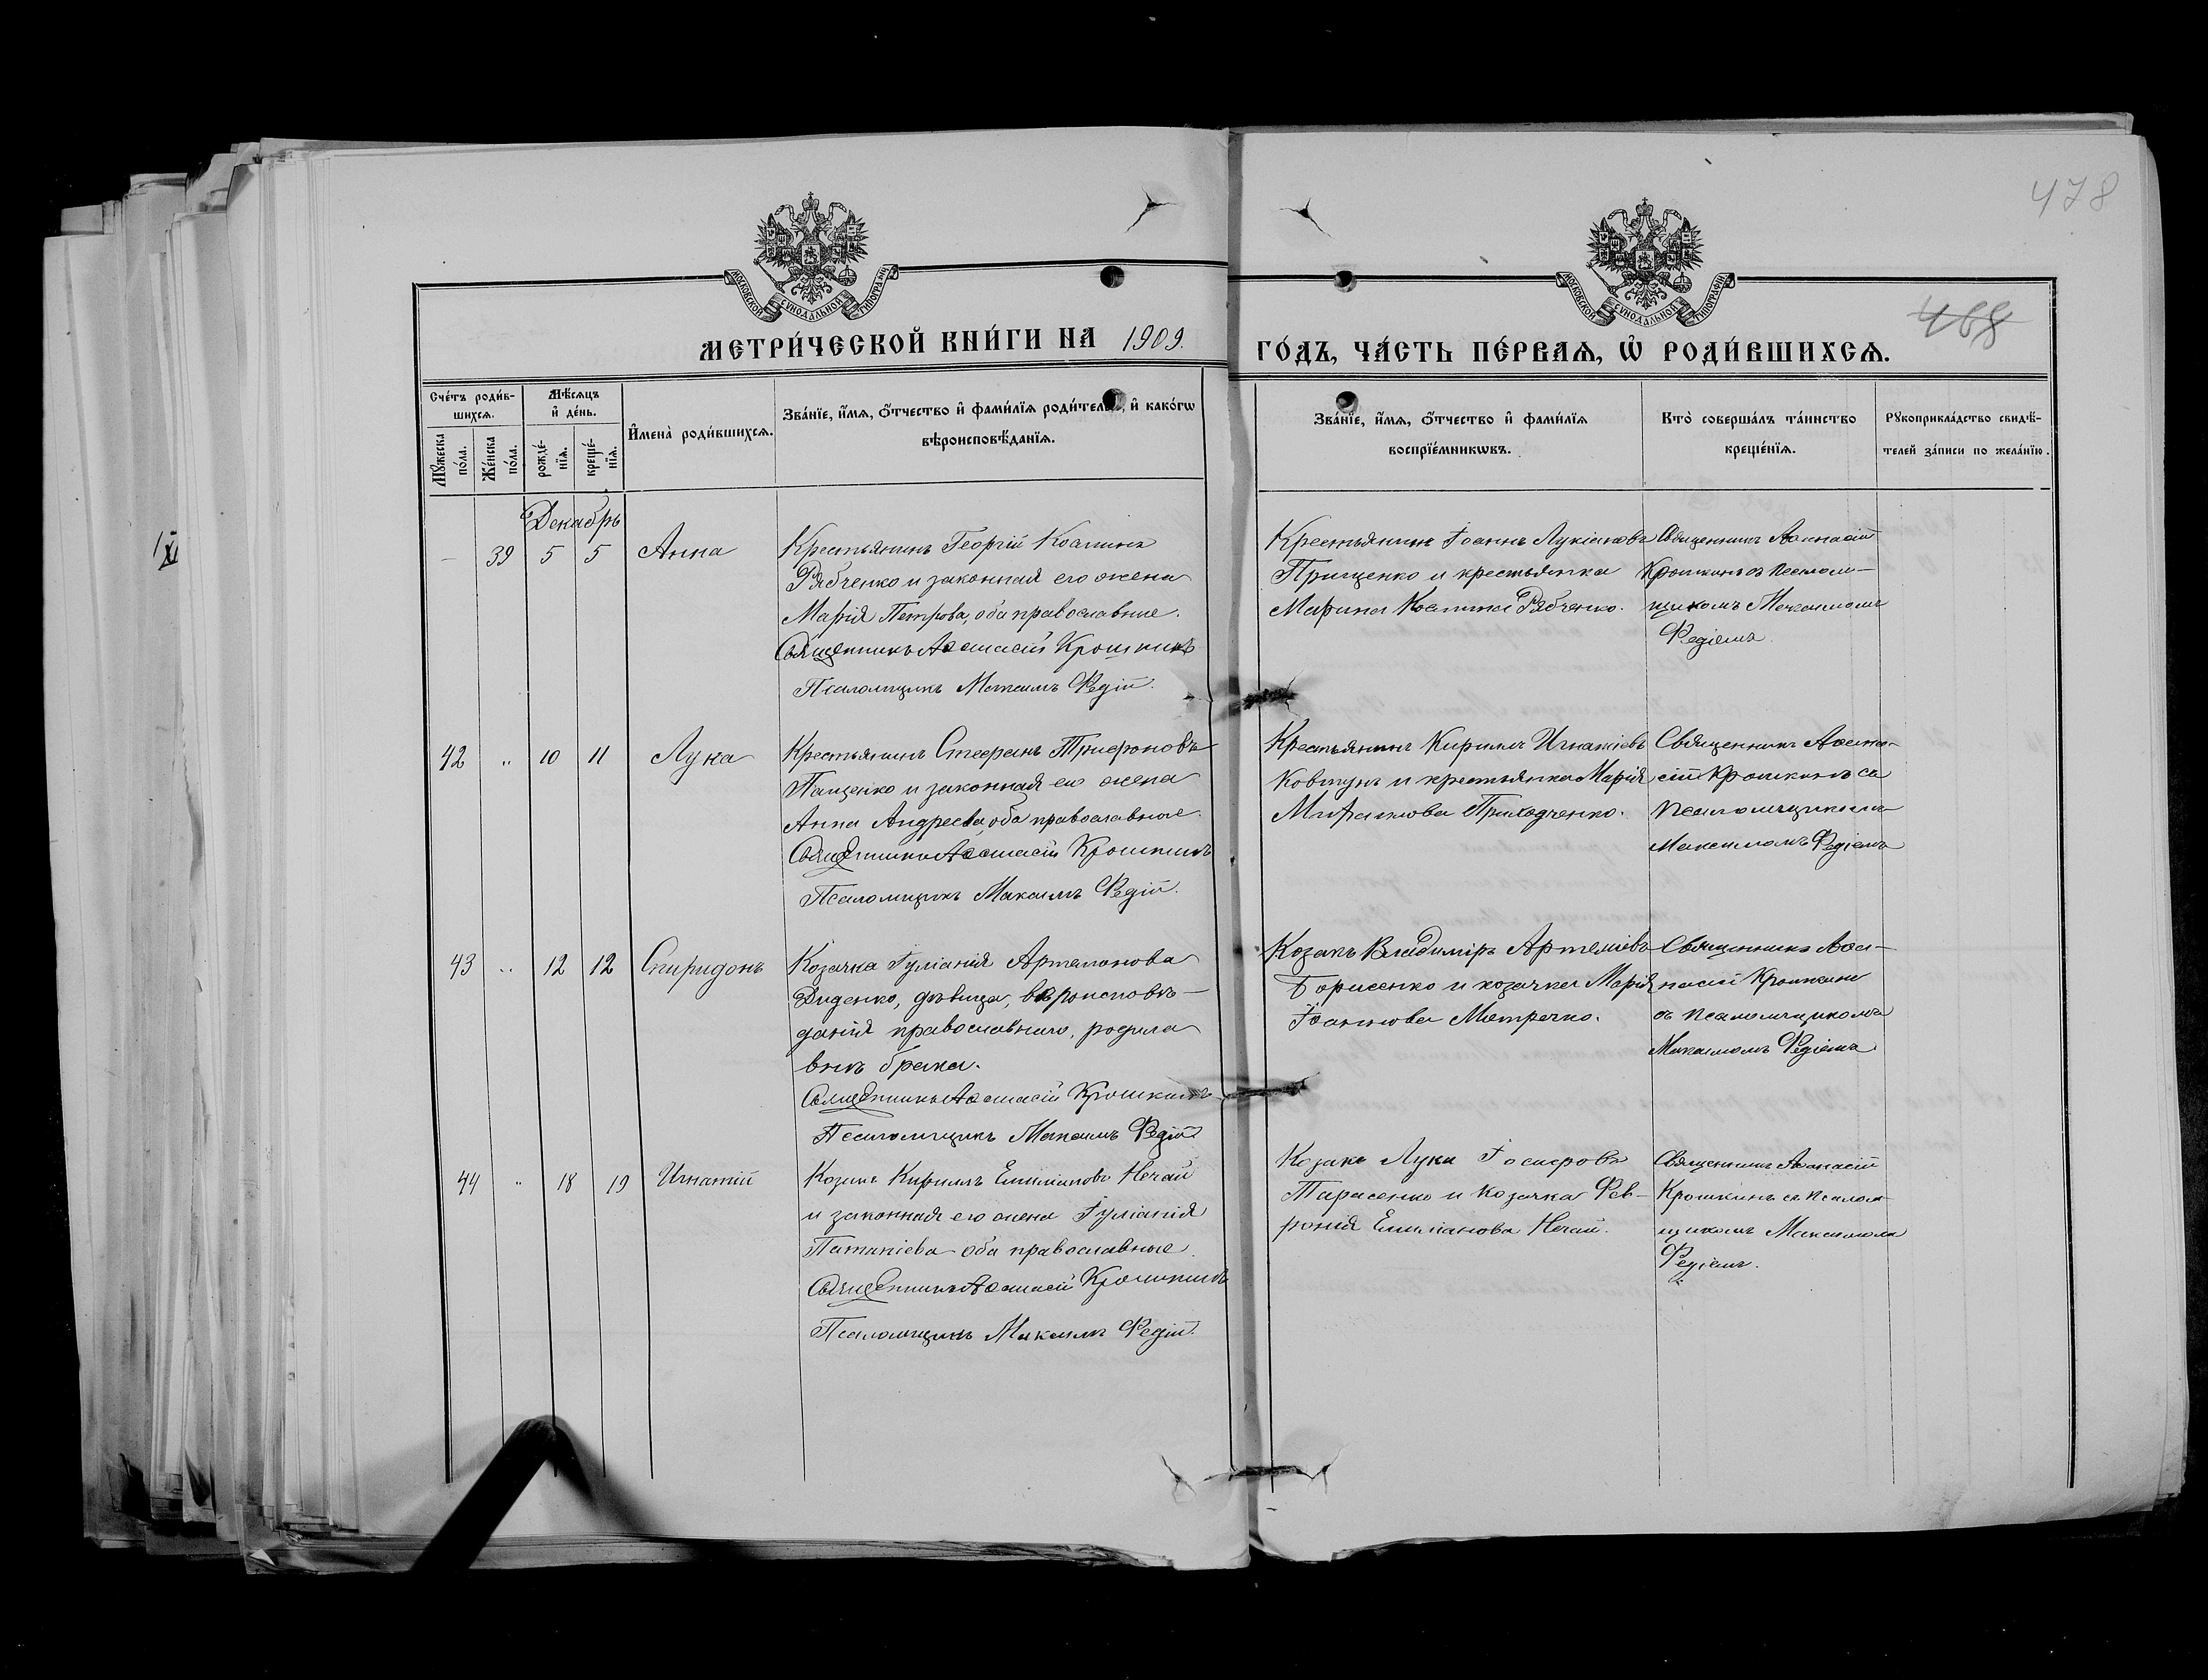 478
468
МОСКОВСКОЙ СѴНОДАЛЬНОЙ ТИПОГРАФІИ
МОСКОВСКОЙ СѴНОДАЛЬНОЙ ТИПОГРАФІИ
МЕТРИ́ЧЕСКОЙ КНИ́ГИ НА 1909. ГО́ДЪ, ЧА́СТЬ ПЕ́РВАѦ, Ѡ҆ РОДИ́ВШИХСѦ.
Сче́тъ роди́в-
шихсѧ.
Мѣ́сѧцъ
и҆ де́нь.
Мꙋ́жеска
по́ла.
Же́нска
по́ла.
рожде́-
нїѧ.
креще́-
нїѧ.
И҆мена̀ роди́вшихсѧ.
Зва́нїе, и҆́мѧ, ѻ҆́тчество и҆ фами́лїѧ роди́телей, и҆ како́гѡ
вѣроисповѣ́данїѧ.
Зва́нїе, и҆́мѧ, ѻ҆́тчество и҆ фами́лїѧ
воспрїе́мникѡвъ.
Кто̀ соверша́лъ та́инство
креще́нїѧ.
Рꙋкоприкла́дство свидѣ́-
телей за́писи по жела́нїю.
Декабрь
— 39 5 5 Анна
Крестьянинъ Георгій Косминъ
Рябченко и законная его жена
Марія Петрова, оба православные.
Священникъ Аѳанасій Крошкинъ
Псаломщикъ Максимъ Ѳедій.
Крестьянинъ Іоаннъ Лукіановъ
Прищенко и крестьянка
Марина Космина Рябченко.
Священникъ Аѳанасій
Крошкинъ съ псалом-
щикомъ Максимомъ
Ѳедіемъ.
42 „ 10 11 Лука
Крестьянинъ Стефанъ Трифоновъ
Пащенко и законная его жена
Анна Андреева, оба православные.
Священникъ Аѳанасій Крошкинъ
Псаломщикъ Максимъ Ѳедій.
Крестьянинъ Кириллъ Игнатіевъ
Ковтунъ и крестьянка Марія
Приходченко.
Священникъ Аѳана-
сій Крошкинъ съ
псаломщикомъ
Максимомъ Ѳедіемъ
43 „ 12 12 Спиридонъ
Козачка Іуліанія Артемонова
Диденко, дѣвица, вѣроисповѣ-
данія православнаго, родила
внѣ брака.
Священникъ Аѳанасій Крошкинъ
Псаломщикъ Максимъ Ѳедій
Козакъ Владиміръ Артеміевъ
Борисенко и козачка Марія
Іоаннова Метречко.
Священникъ Аѳа-
насій Крошкинъ
съ псаломщикомъ
Максимомъ Ѳедіемъ
44 „ 18 19 Игнатій
Козакъ Кириллъ Емиліановъ Нечай
и законная его жена Іуліанія
оба православные.
Священникъ Аѳанасій Крошкинъ
Псаломщикъ Максимъ Ѳедій.
Козакъ Лука Іосифовъ
Тарасенко и козачка Фев-
ронія Емиліанова Нечай.
Священникъ Аѳанасій
Крошкинъ съ псалом-
щикомъ Максимомъ
Ѳедіемъ.